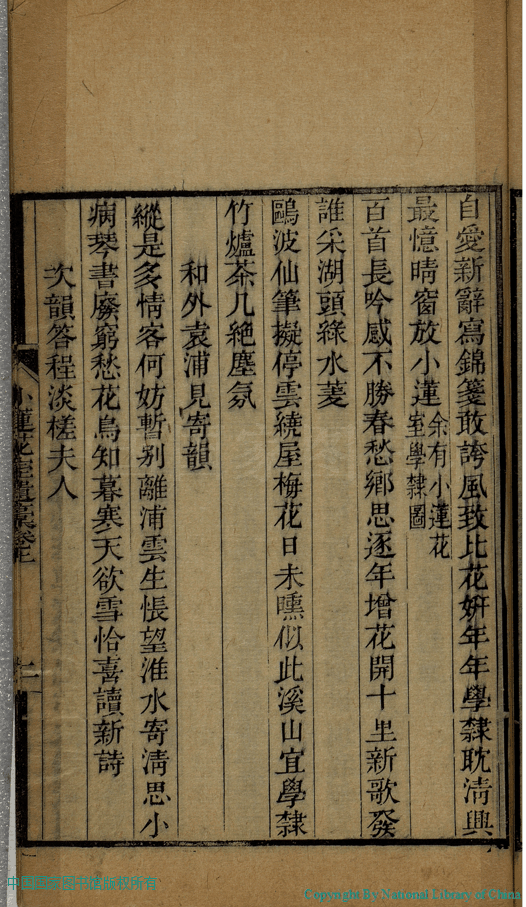 自愛新辭寫錦箋敢誇風致比花妍年年學隸耽清興
最憶晴窗放小蓮余有小蓮花室學隸圖
百首長吟感不勝春愁鄉思逐年增花開十里新歌發
誰采湖頭綠水菱
鷗波仙筆擬停雲繞屋梅花日未曛似此溪山宜學隸
竹爐茶几絕塵氛
和外袁浦見寄韻
縱是多情客何妨暫別離浦雲生悵望淮水寄清思小
病琴書廢窮愁花鳥知暮寒天欲雪恰喜讀新詩
次韻答程淡槎夫人
小蓮花室遺稾卷上
二
中国国家图书馆版权所有
Copyright By National Library of China